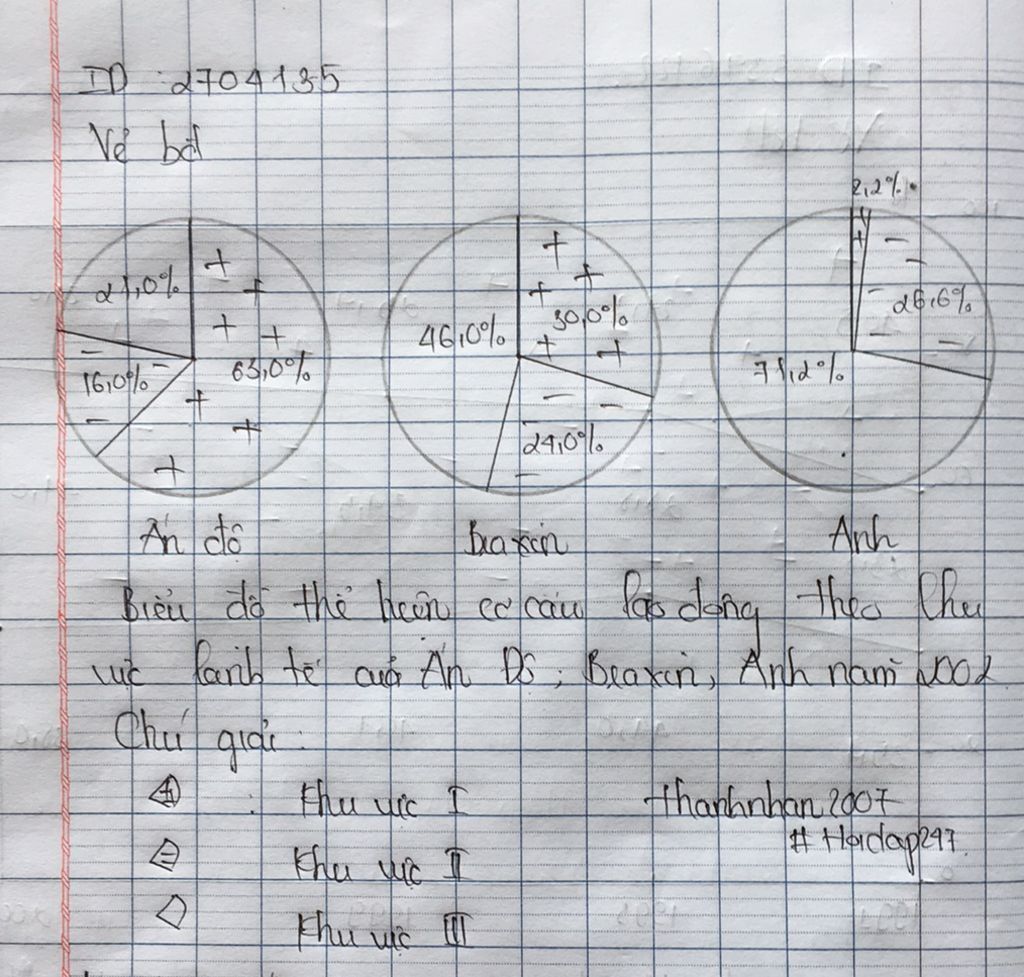 ID : 2704135
Vẽ bđ
2,2%
21,0%
16,0%
63,0%
46,0%
30,0%
24,0%
26,6%
71,2%
Ấn độ
Braxin
Anh
Biểu đồ thể hiện cơ cấu lao động theo khu
vực kinh tế của Ấn Độ; Braxin, Anh năm 2002
Chú giải :
: Khu vực I
Khu vực II
Khu vực III
thanhnhan2007
# Hoidap247.